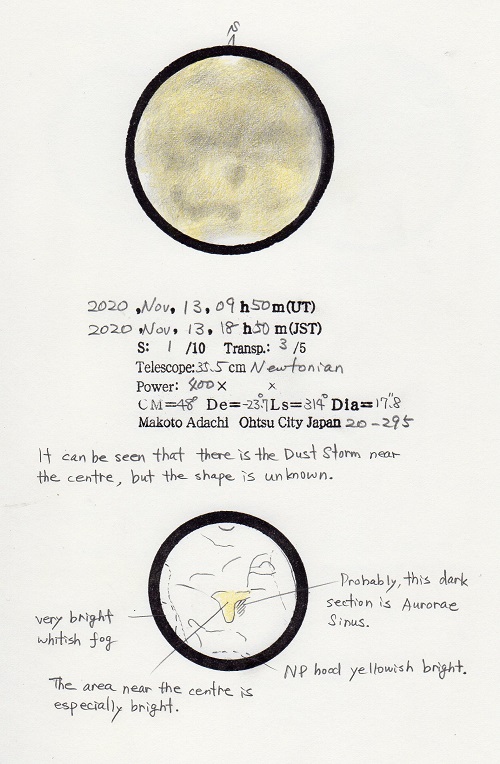 S
2020, Nov, 13, 09 h 50 m (UT)
2020, Nov, 13, 18 h 50 m (JST)
S: 1 /10 Transp.: 3 /5
Telescope: 35.5 cm Newtonian
Power: 400 × ×
CM=48° De=-23.7 Ls=314° Dia=17."8
Makoto Adachi Ohtsu City Japan 20-295
It can be seen that there is the Dust Storm near
the centre, but the shape is unknown.
Probably, this dark
section is Aurorae
Sinus.
very bright
whitish fog
NP hood yellowish bright.
The area near the centre is
especially bright.